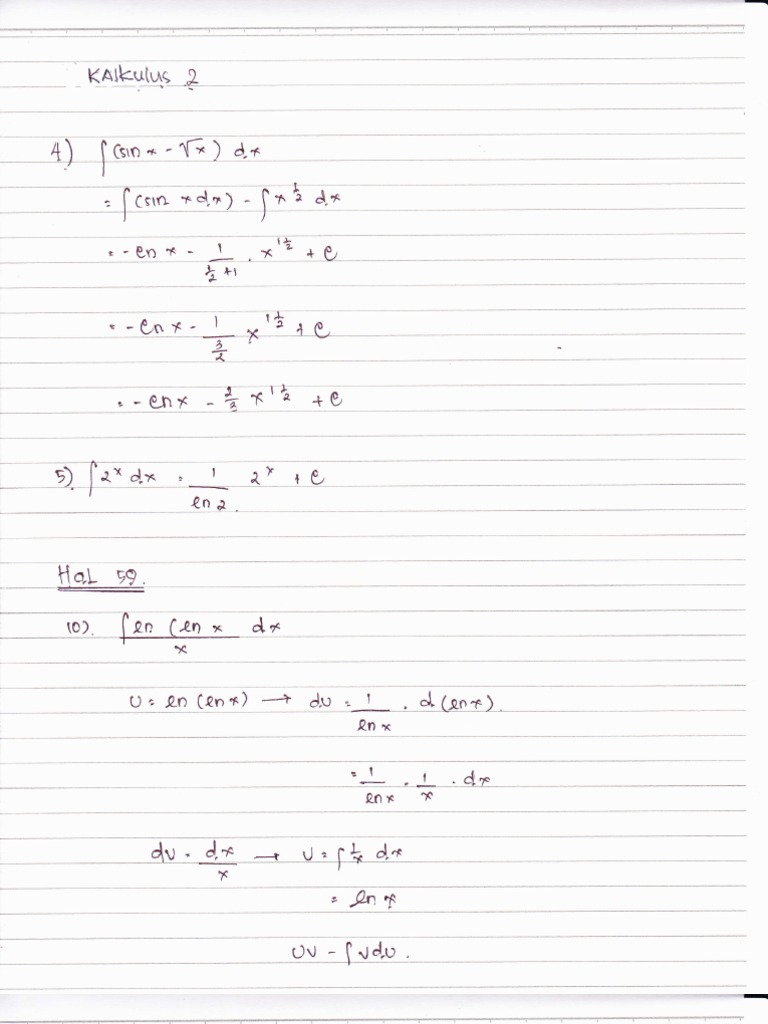 KAlkulus 2
4) ∫(sin x - √x) dx
= ∫(sin x dx) - ∫x^½ dx
= - en x - 1/(½+1) . x^1½ + c
= - en x - 1/(3/2) x^1½ + c
= - en x - 2/3 x^1½ + c
5) ∫2^x dx = 1/en 2 2^x + c
HaL 59.
10). ∫en (en x / x dx
U = en (en x) → du = 1/en x . d (en x).
= 1/en x . 1/x . dx
dv = dx/x → v = ∫1/x dx
= en x
uv - ∫vdu.